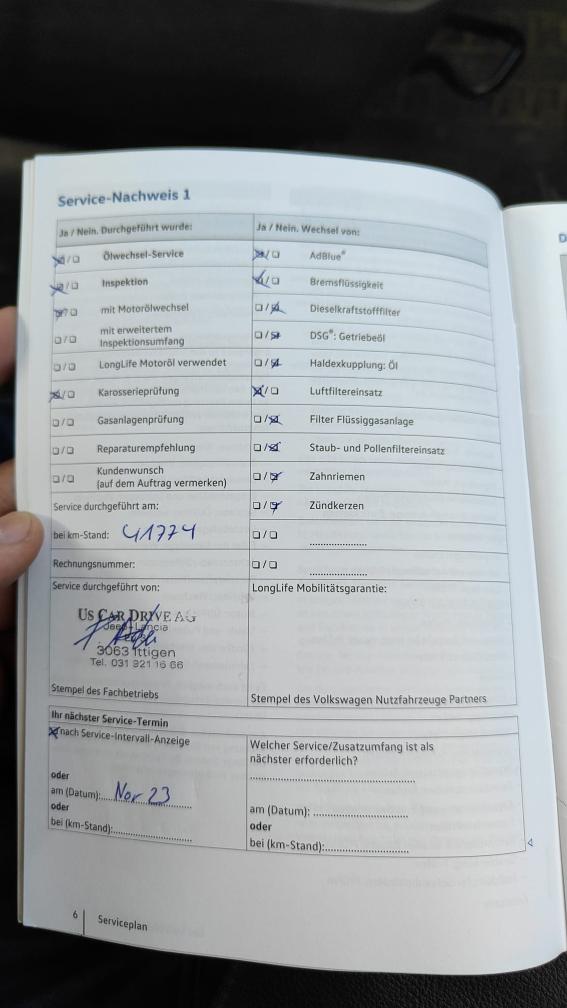 Service-Nachweis 1
Ja / Nein. Durchgeführt wurde:
Ölwechsel-Service
Inspektion
mit Motorölwechsel
mit erweitertem
Inspektionsumfang
LongLife Motoröl verwendet
Karosserieprüfung
Gasanlagenprüfung
Reparaturempfehlung
Kundenwunsch
(auf dem Auftrag vermerken)
Service durchgeführt am:
bei km-Stand: 41774
Rechnungsnummer:
Service durchgeführt von:
US CAR DRIVE AG
Jeep - Lancia
3063 Ittigen
Tel. 031 921 16 66
Stempel des Fachbetriebs
Ja / Nein. Wechsel von:
AdBlue®
Bremsflüssigkeit
Dieselkraftstofffilter
DSG®: Getriebeöl
Haldexkupplung: Öl
Luftfiltereinsatz
Filter Flüssiggasanlage
Staub- und Pollenfiltereinsatz
Zahnriemen
Zündkerzen
LongLife Mobilitätsgarantie:
Stempel des Volkswagen Nutzfahrzeuge Partners
Ihr nächster Service-Termin
nach Service-Intervall-Anzeige
oder
am (Datum): Nov 23
oder
bei (km-Stand):
Welcher Service/Zusatzumfang ist als
nächster erforderlich?
am (Datum):
oder
bei (km-Stand):
6 Serviceplan